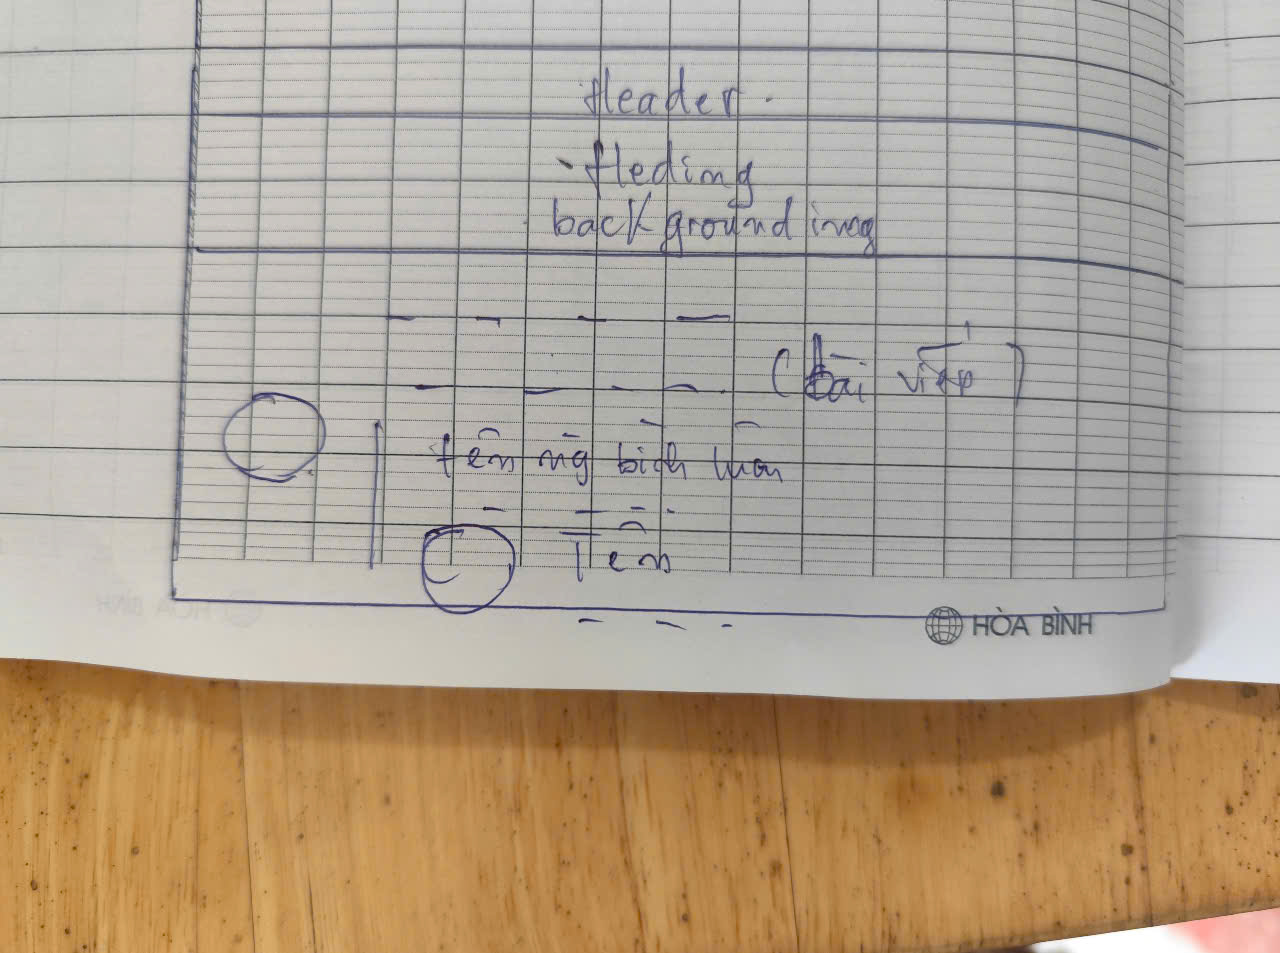 Header.
Heding
background img
(bài viết)
tên ng bình luận
Tên
HÒA BÌNH